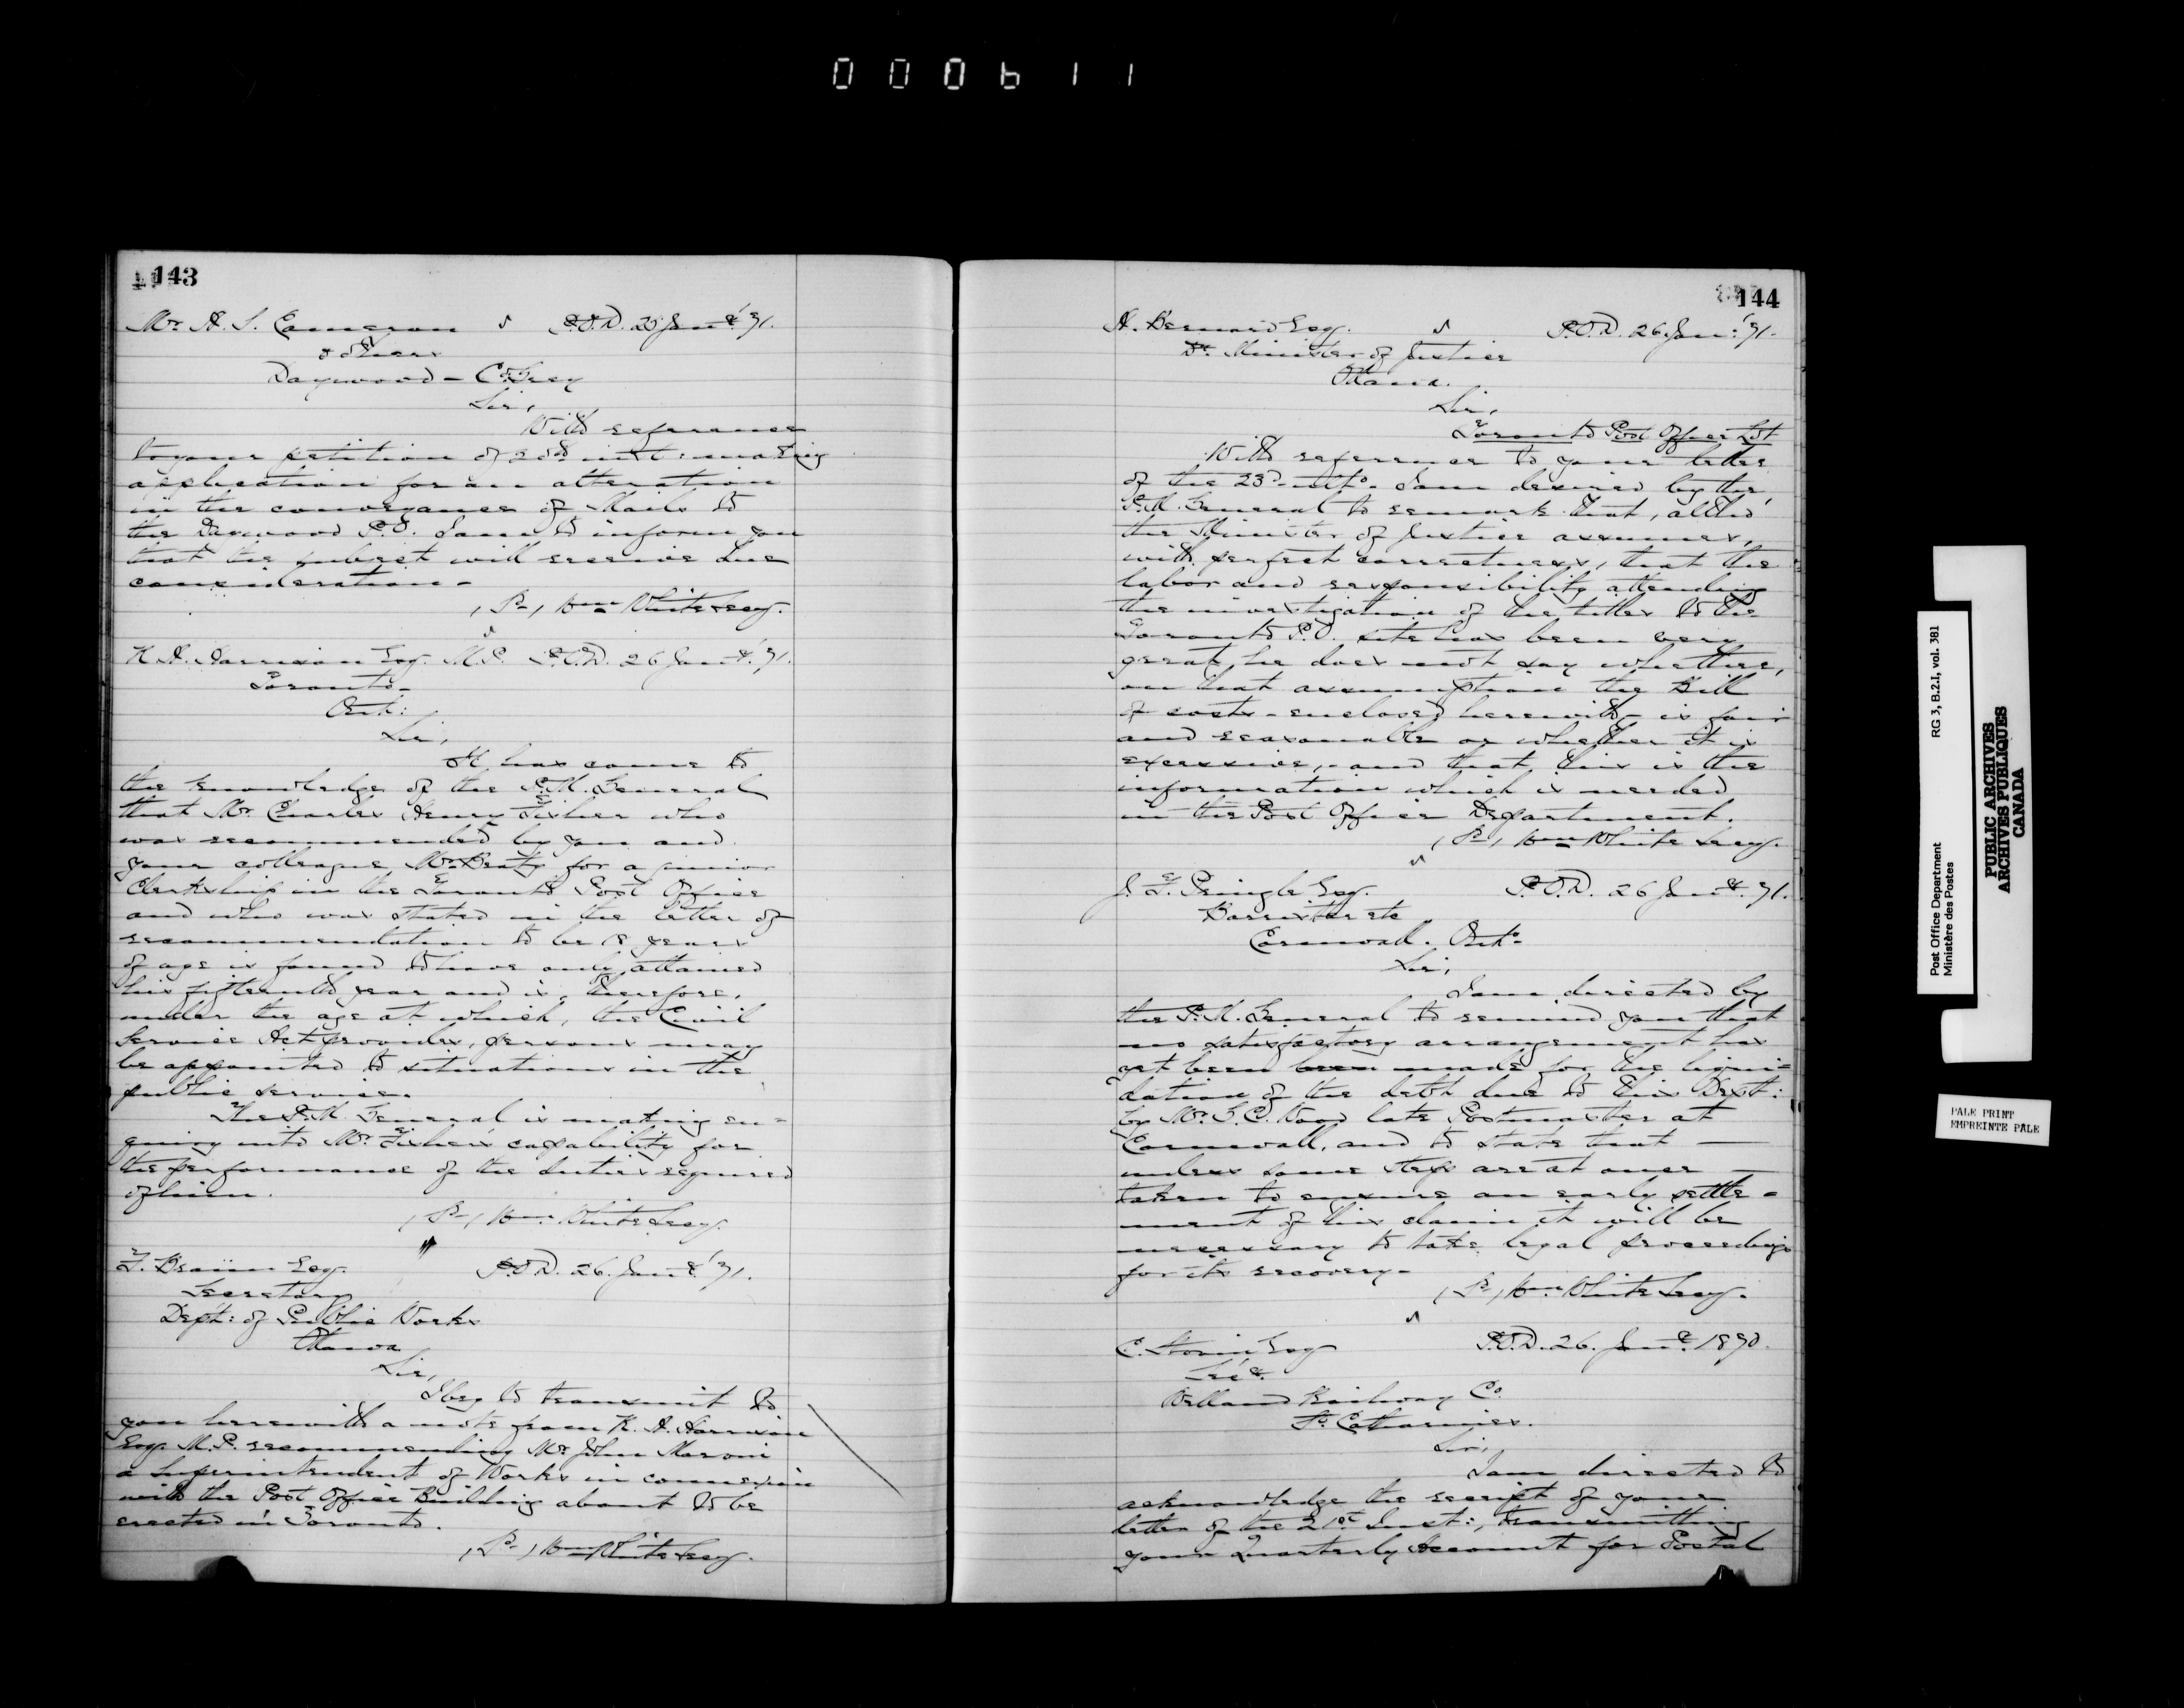 000611
143
Mr. A. S. Cameron P.O.D. 25 Jany. '71.
& others
Daywood - Co. Grey
Sir,
With reference
to your petition of 20th inst: making
application for an alteration
in the conveyance of Mails to
the Daywood P.O. I am to inform you
that the subject will receive due
consideration -
, Sd , Wm White Secy.
R. A. Harrison Esq. M.P. P.O.D. 26 Jany. '71.
Toronto -
Ont:
Sir,
It has come to
the knowledge of the P.M. General
that Mr. Charles Henry Fisher who
was recommended by you and
your colleague Mr. Beaty for a junior
Clerkship in the Toronto Post Office
and who was stated in the letter of
recommendation to be 18 years
of age is found to have only attained
his fifteenth year and is, therefore,
under the age at which, the Civil
Service Act provides, persons may
be appointed to situations in the
public service.
The P.M. General is making en=
quiry into Mr. Fisher's capability for
the performance of the duties required
of him.
, Sd , Wm. White Secy.
F. Braün Esq. P.O.D. 26. Jany. '71.
Secretary
Dept: of Public Works
Ottawa
Sir,
I beg to transmit to
you herewith a note from R. A. Harrison
Esq. M.P. recommending Mr. John
a Superintendent of Works in connexion
with the Post Office Building about to be
erected in Toronto.
, Sd , Wm White Secy.
144
H. Bernard Esq. P.O.D. 26. Jan: '71.
Dr. Minister of Justice
Ottawa.
Sir,
Toronto Post Office Lot
With reference to your letter
of the 23d ulto. I am desired by the
P.M. General to remark that, altho'
the Minister of Justice assumes,
with perfect correctness, that the
labor and responsibility attending
the investigation of the titles to the
Toronto P.O. site has been very
great, he does not say whether,
on that assumption the Bill
of costs - enclosed herewith - is fair
and reasonable or whether it is
excessive, - and that this is the
information which is needed
in the Post Office Department.
, Sd , Wm White Secy.
J. F. Pringle Esq. P.O.D. 26 Jany. 71.
Barrister etc
Cornwall. Onto.
Sir,
I am directed by
the P.M. General to remind you that
no satisfactory arrangement has
yet been made for the liqui=
dation of the debt due to this Dept:
by Mr. S. C. Wood late Postmaster at
Cornwall, and to state that
unless some steps are at once
taken to ensure an early settle=
ment of this claim it will be
necessary to take legal proceedings
for its recovery -
, Sd , Wm. White Secy.
C. Stovin Esq P.O.D. 26. Jany. 1870.
Welland Railway Co.
St. Catharines.
Sir,
I am directed to
acknowledge the receipt of your
letter of the 21st Inst:, transmitting
your Quarterly Account for Postal
Post Office Department RG 3, B.2.I, vol. 381
Ministère des Postes
PUBLIC ARCHIVES
ARCHIVES PUBLIQUES
CANADA
PALE PRINT
EMPREINTE PÂLE